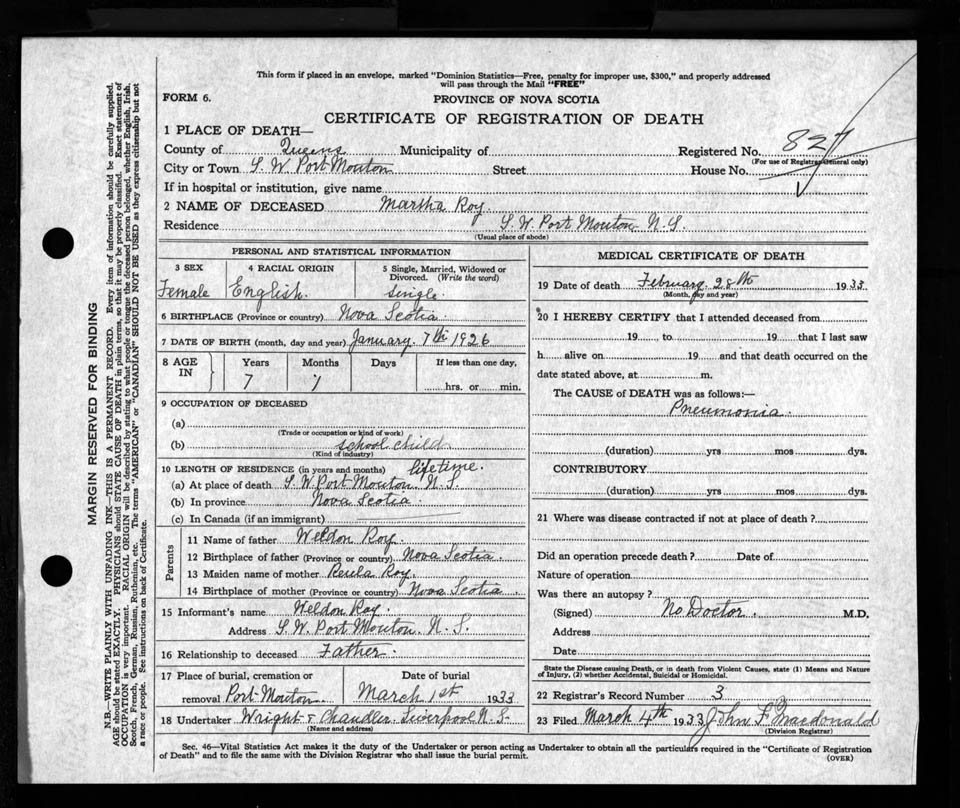 This form if placed in an envelope, marked "Dominion Statistics—Free, penalty for improper use, $300," and properly addressed
will pass through the Mail "FREE"
FORM 6.
PROVINCE OF NOVA SCOTIA
CERTIFICATE OF REGISTRATION OF DEATH
1 PLACE OF DEATH—
County of Queens Municipality of Registered No. 827
(For use of Registrar General only)
City or Town S. W. Port Mouton Street House No.
If in hospital or institution, give name
2 NAME OF DECEASED Martha Roy.
Residence S. W. Port Mouton N. S.
(Usual place of abode)
PERSONAL AND STATISTICAL INFORMATION
3 SEX 4 RACIAL ORIGIN 5 Single, Married, Widowed or
Divorced. (Write the word)
Female English. single.
6 BIRTHPLACE (Province or country) Nova Scotia.
7 DATE OF BIRTH (month, day and year) January. 7th 1926
8 AGE IN Years Months Days If less than one day,
7 1 hrs. or min.
9 OCCUPATION OF DECEASED
(a)
(Trade or occupation or kind of work)
(b) school child
(Kind of industry)
10 LENGTH OF RESIDENCE (in years and months) lifetime.
(a) At place of death S. W. Port Mouton N. S.
(b) In province Nova Scotia
(c) In Canada (if an immigrant)
Parents
11 Name of father Weldon Roy.
12 Birthplace of father (Province or country) Nova Scotia.
13 Maiden name of mother Roy.
14 Birthplace of mother (Province or country) Nova Scotia
15 Informant's name Weldon Roy.
Address S. W. Port Mouton. N. S.
16 Relationship to deceased Father.
17 Place of burial, cremation or Date of burial
removal Port Mouton March 1st 1933
18 Undertaker Wright & Chandler. Liverpool N. S.
(Name and address)
MEDICAL CERTIFICATE OF DEATH
19 Date of death February. 28th 1933
(Month, day and year)
20 I HEREBY CERTIFY that I attended deceased from
19 to 19 that I last saw
h alive on 19 and that death occurred on the
date stated above, at m.
The CAUSE of DEATH was as follows:—
Pneumonia.
(duration) yrs mos dys.
CONTRIBUTORY
(duration) yrs mos dys.
21 Where was disease contracted if not at place of death?
Did an operation precede death? Date of
Nature of operation
Was there an autopsy?
(Signed) No Doctor. M.D.
Address
Date
State the Disease causing Death, or in death from Violent Causes, state (1) Means and Nature
of Injury, (2) whether Accidental, Suicidal or Homicidal.
22 Registrar's Record Number 3
23 Filed March 4th 1933 John F Macdonald
(Division Registrar)
Sec. 46—Vital Statistics Act makes it the duty of the Undertaker or person acting as Undertaker to obtain all the particulars required in the "Certificate of Registration
of Death" and to file the same with the Division Registrar who shall issue the burial permit.
(OVER)
MARGIN RESERVED FOR BINDING
N.B.—WRITE PLAINLY WITH UNFADING INK—THIS IS A PERMANENT RECORD. Every item of information should be carefully supplied.
AGE should be stated EXACTLY. PHYSICIANS should STATE CAUSE OF DEATH in plain terms, so that it may be properly classified. Exact statement of
OCCUPATION is very important. RACIAL ORIGIN will be described by stating to what people or tongue the deceased person belonged, whether English, Irish,
Scotch, French, German, Russian, Ruthenian, etc. The terms "AMERICAN" or "CANADIAN" SHOULD NOT BE USED as they express citizenship but not
a race or people. See instructions on back of Certificate.